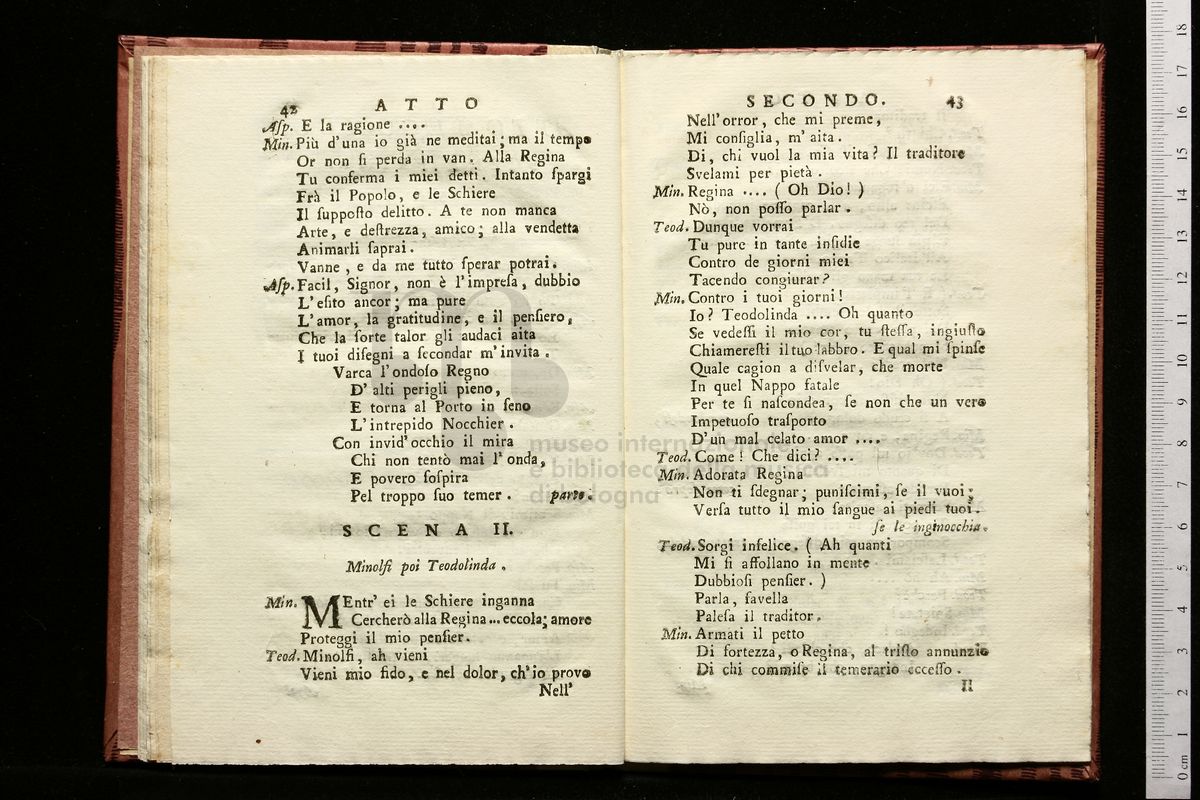 42 ATTO
Aſp. E la ragione ....
Min. Più d'una io già ne meditai; ma il tempo
Or non ſi perda in van. Alla Regina
Tu conferma i miei detti. Intanto ſpargi
Frà il Popolo, e le Schiere
Il ſuppoſto delitto. A te non manca
Arte, e deſtrezza, amico; alla vendetta
Animarli ſaprai.
Vanne, e da me tutto ſperar potrai.
Aſp. Facil, Signor, non è l'impreſa, dubbio
L'eſito ancor; ma pure
L'amor, la gratitudine, e il penſiero,
Che la ſorte talor gli audaci aita
I tuoi diſegni a ſecondar m'invita.
Varca l'ondoſo Regno
D'alti perigli pieno,
E torna al Porto in ſeno
L'intrepido Nocchier.
Con invid'occhio il mira
Chi non tentò mai l'onda,
E povero ſoſpira
Pel troppo ſuo temer. parte.
SCENA II.
Minolſi poi Teodolinda.
Min. MEntr' ei le Schiere inganna
Cercherò alla Regina... eccola; amore
Proteggi il mio penſier.
Teod. Minolſi, ah vieni
Vieni mio fido, e nel dolor, ch'io provo
Nell'
SECONDO. 43
Nell'orror, che mi preme,
Mi conſiglia, m'aita.
Di, chi vuol la mia vita? Il traditore
Svelami per pietà.
Min. Regina .... ( Oh Dio! )
Nò, non poſſo parlar.
Teod. Dunque vorrai
Tu pure in tante inſidie
Contro de giorni miei
Tacendo congiurar?
Min. Contro i tuoi giorni!
Io? Teodolinda .... Oh quanto
Se vedeſſi il mio cor, tu ſteſſa, ingiuſto
Chiamereſti il tuo labbro. E qual mi ſpinſe
Quale cagion a diſvelar, che morte
In quel Nappo fatale
Per te ſi naſcondea, ſe non che un vero
Impetuoſo traſporto
D'un mal celato amor ....
Teod. Come! Che dici? ....
Min. Adorata Regina
Non ti ſdegnar; puniſcimi, ſe il vuoi;
Verſa tutto il mio ſangue ai piedi tuoi.
ſe le inginocchia.
Teod. Sorgi infelice. ( Ah quanti
Mi ſi affollano in mente
Dubbioſi penſier. )
Parla, favella
Paleſa il traditor.
Min. Armati il petto
Di fortezza, o Regina, al triſto annunzio
Di chi commiſe il temerario ecceſſo.
Il
museo internazionale
e biblioteca della musica
di bologna
0 cm 1 2 3 4 5 6 7 8 9 10 11 12 13 14 15 16 17 18